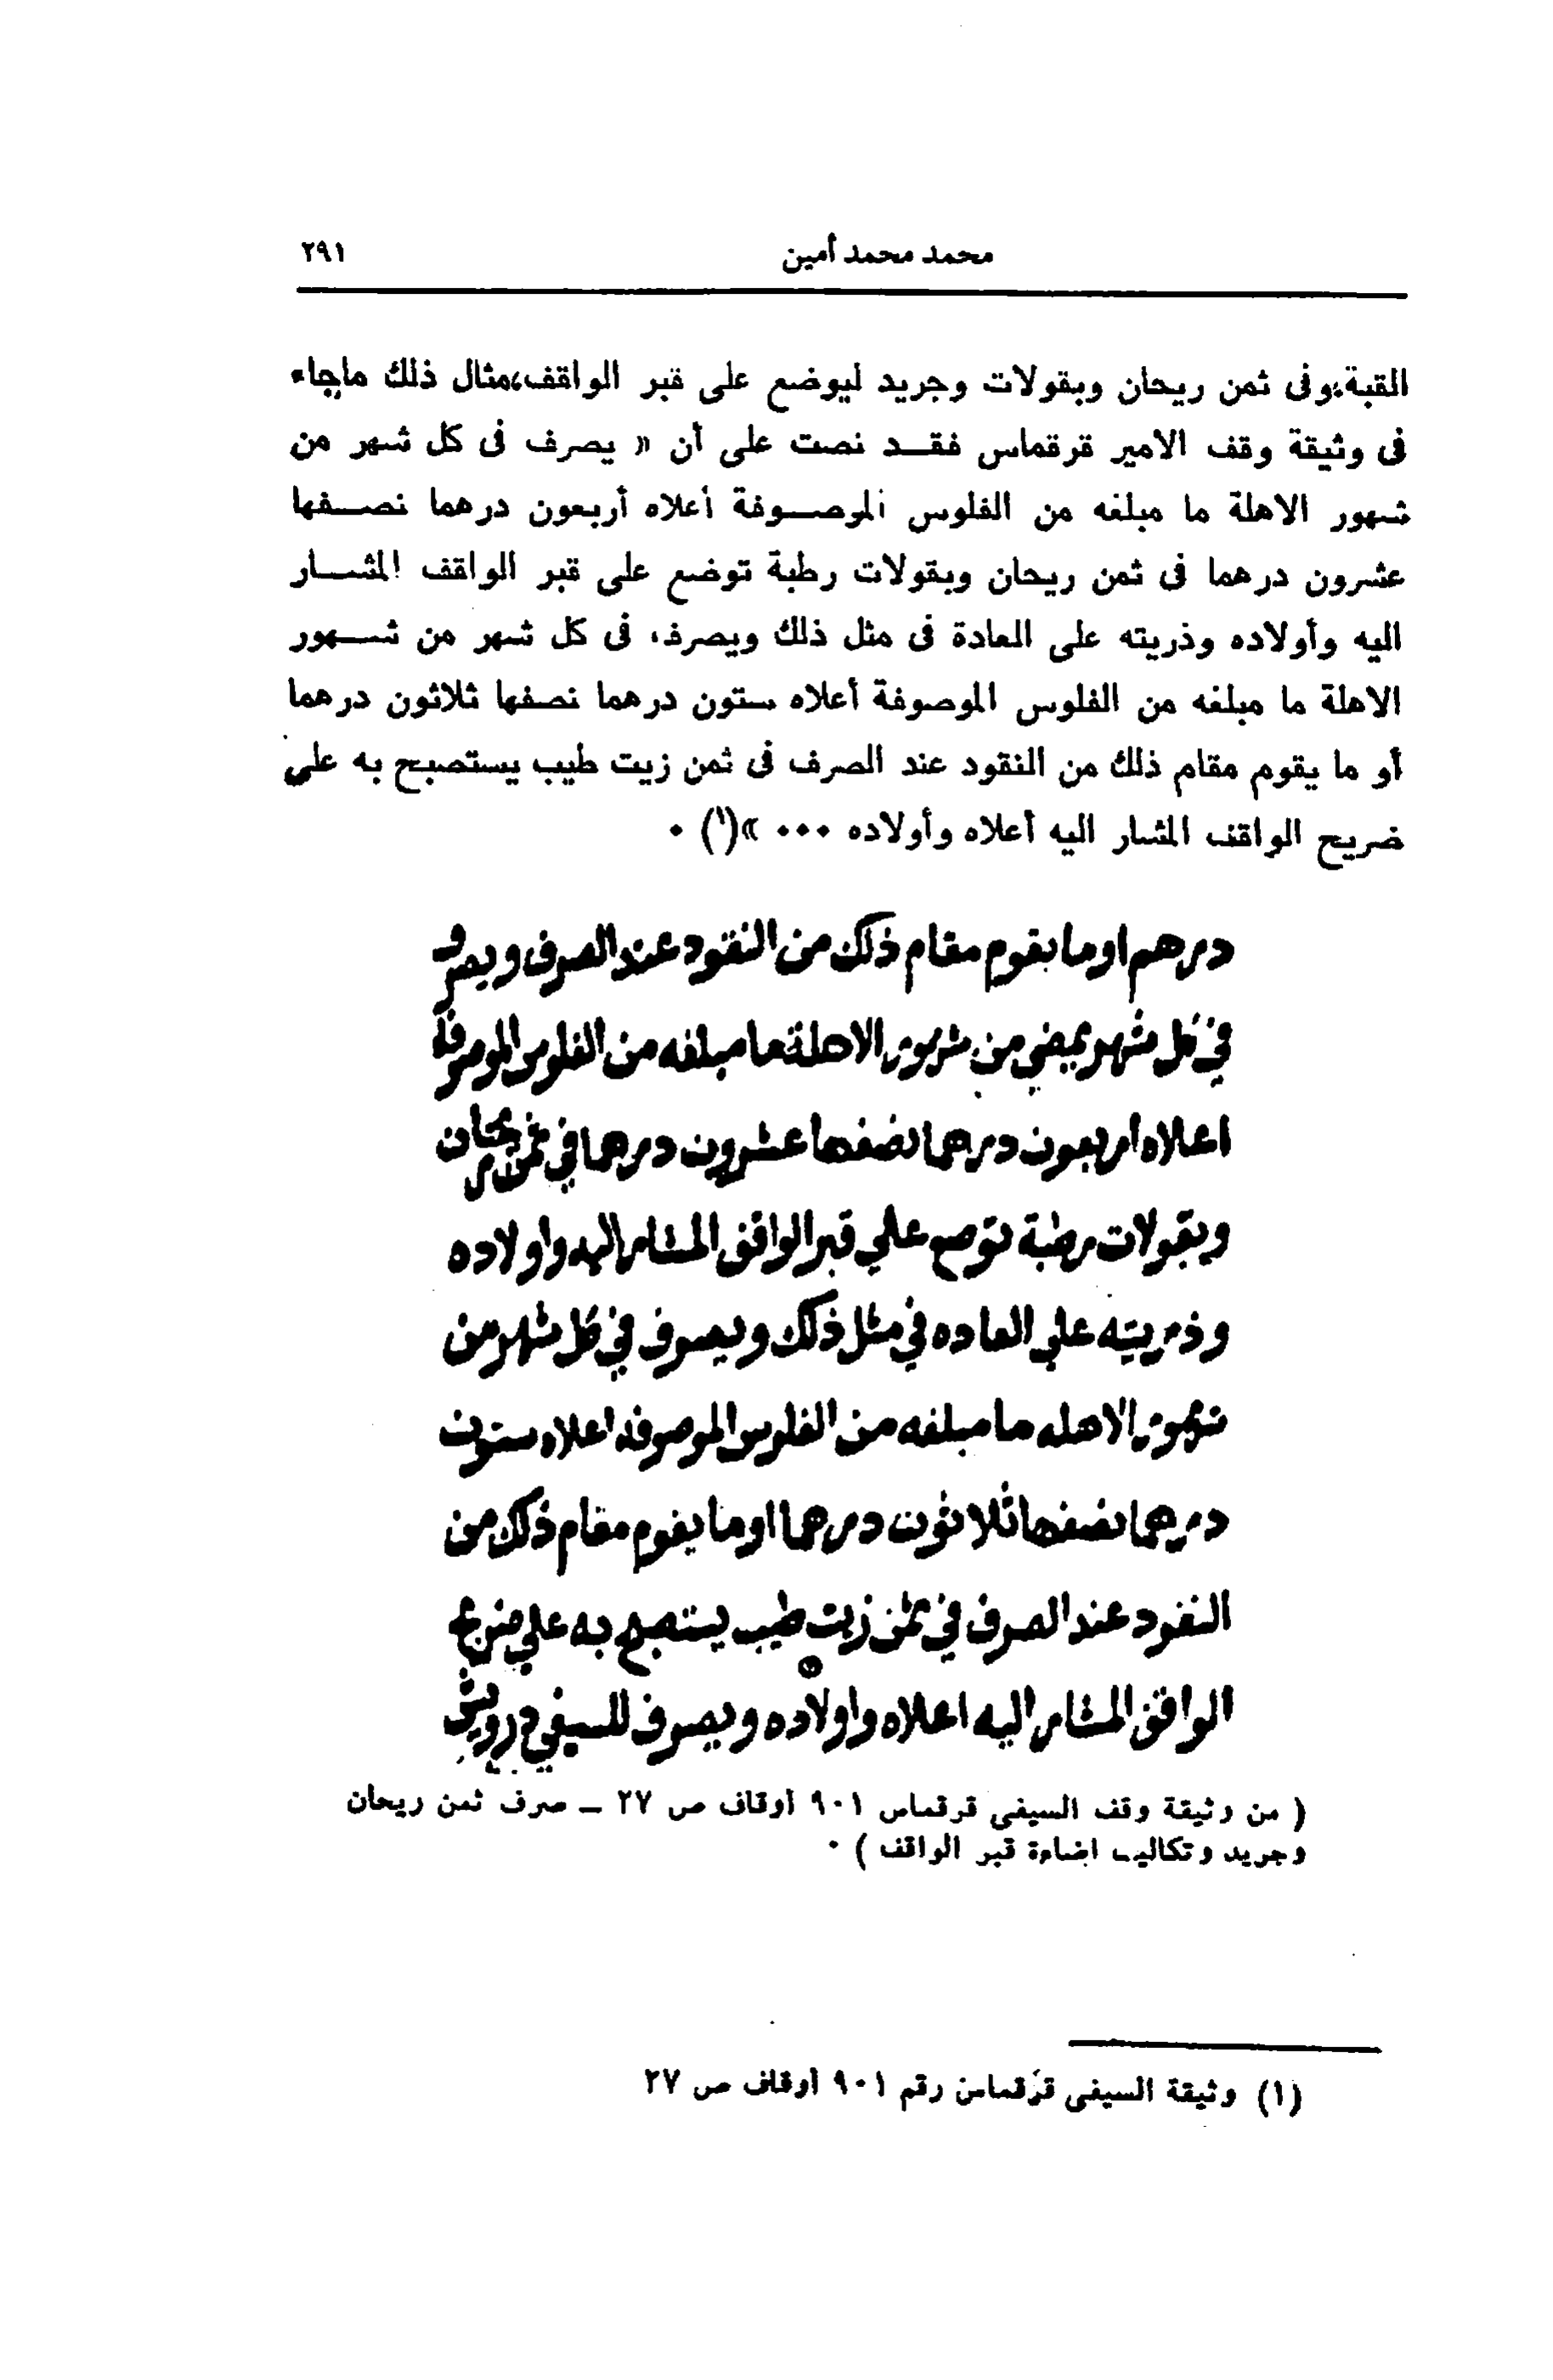 محمد محمد أمين ٢٩١
القبة،وفى ثمن ريحان وبقولات وجريد ليوضع على قبر الواقف،مثال ذلك ماجاء
فى وثيقة وقف الامير قرقماس فقـــد نصت على أن « يصرف فى كل شهر من
شهور الاهلة ما مبلغه من الفلوس الموصــوفة أعلاه أربعون درهما نصــفها
عشرون درهما فى ثمن ريحان وبقولات رطبة توضع على قبر الواقف المشــار
اليه وأولاده وذريته على العادة فى مثل ذلك ويصرف، فى كل شهر من شــهور
الاهلة ما مبلغه من الفلوس الموصوفة أعلاه ستون درهما نصفها ثلاثون درهما
أو ما يقوم مقام ذلك من النقود عند الصرف فى ثمن زيت طيب يستصبح به على
ضريح الواقف المشار اليه أعلاه وأولاده ٠٠٠ »(١) ٠
درهم او ما يقوم مقام ذلك من النقود عند الصرف ويصرف
في كل شهر يمضي من شهور الاهلة ما مبلغه من الفلوس الموصوفة
اعلاه اربعون درهما نصفها عشرون درهما في ثمن ريحان
وبقولات رطبة توضع علي قبر الواقف المشار اليه واولاده
وذريته علي العاده في مثل ذلك ويصرف في كل شهر من
شهور الاهله ما مبلغه من الفلوس الموصوفه اعلاه ستون
درهما نصفها ثلاثون درهما او ما يقوم مقام ذلك من
النقود عند الصرف في ثمن زيت طيب يستصبح به علي ضريح
الواقف المشار اليه اعلاه واولاده ويصرف للسيفي درويش
( من وثيقة وقف السيفى قرقماس ٩٠١ أوقاف ص ٢٧ ــ صرف ثمن ريحان
وجريد وتكاليف اضاءة قبر الواقف ) ٠
(١) وثيقة السيفى قرقماس رقم ٩٠١ أوقاف ص ٢٧